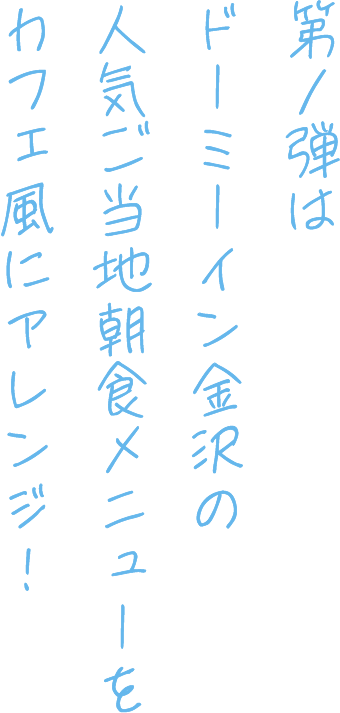 第1弾は
ドーミーイン金沢の
人気ご当地朝食メニューを
カフェ風にアレンジ！